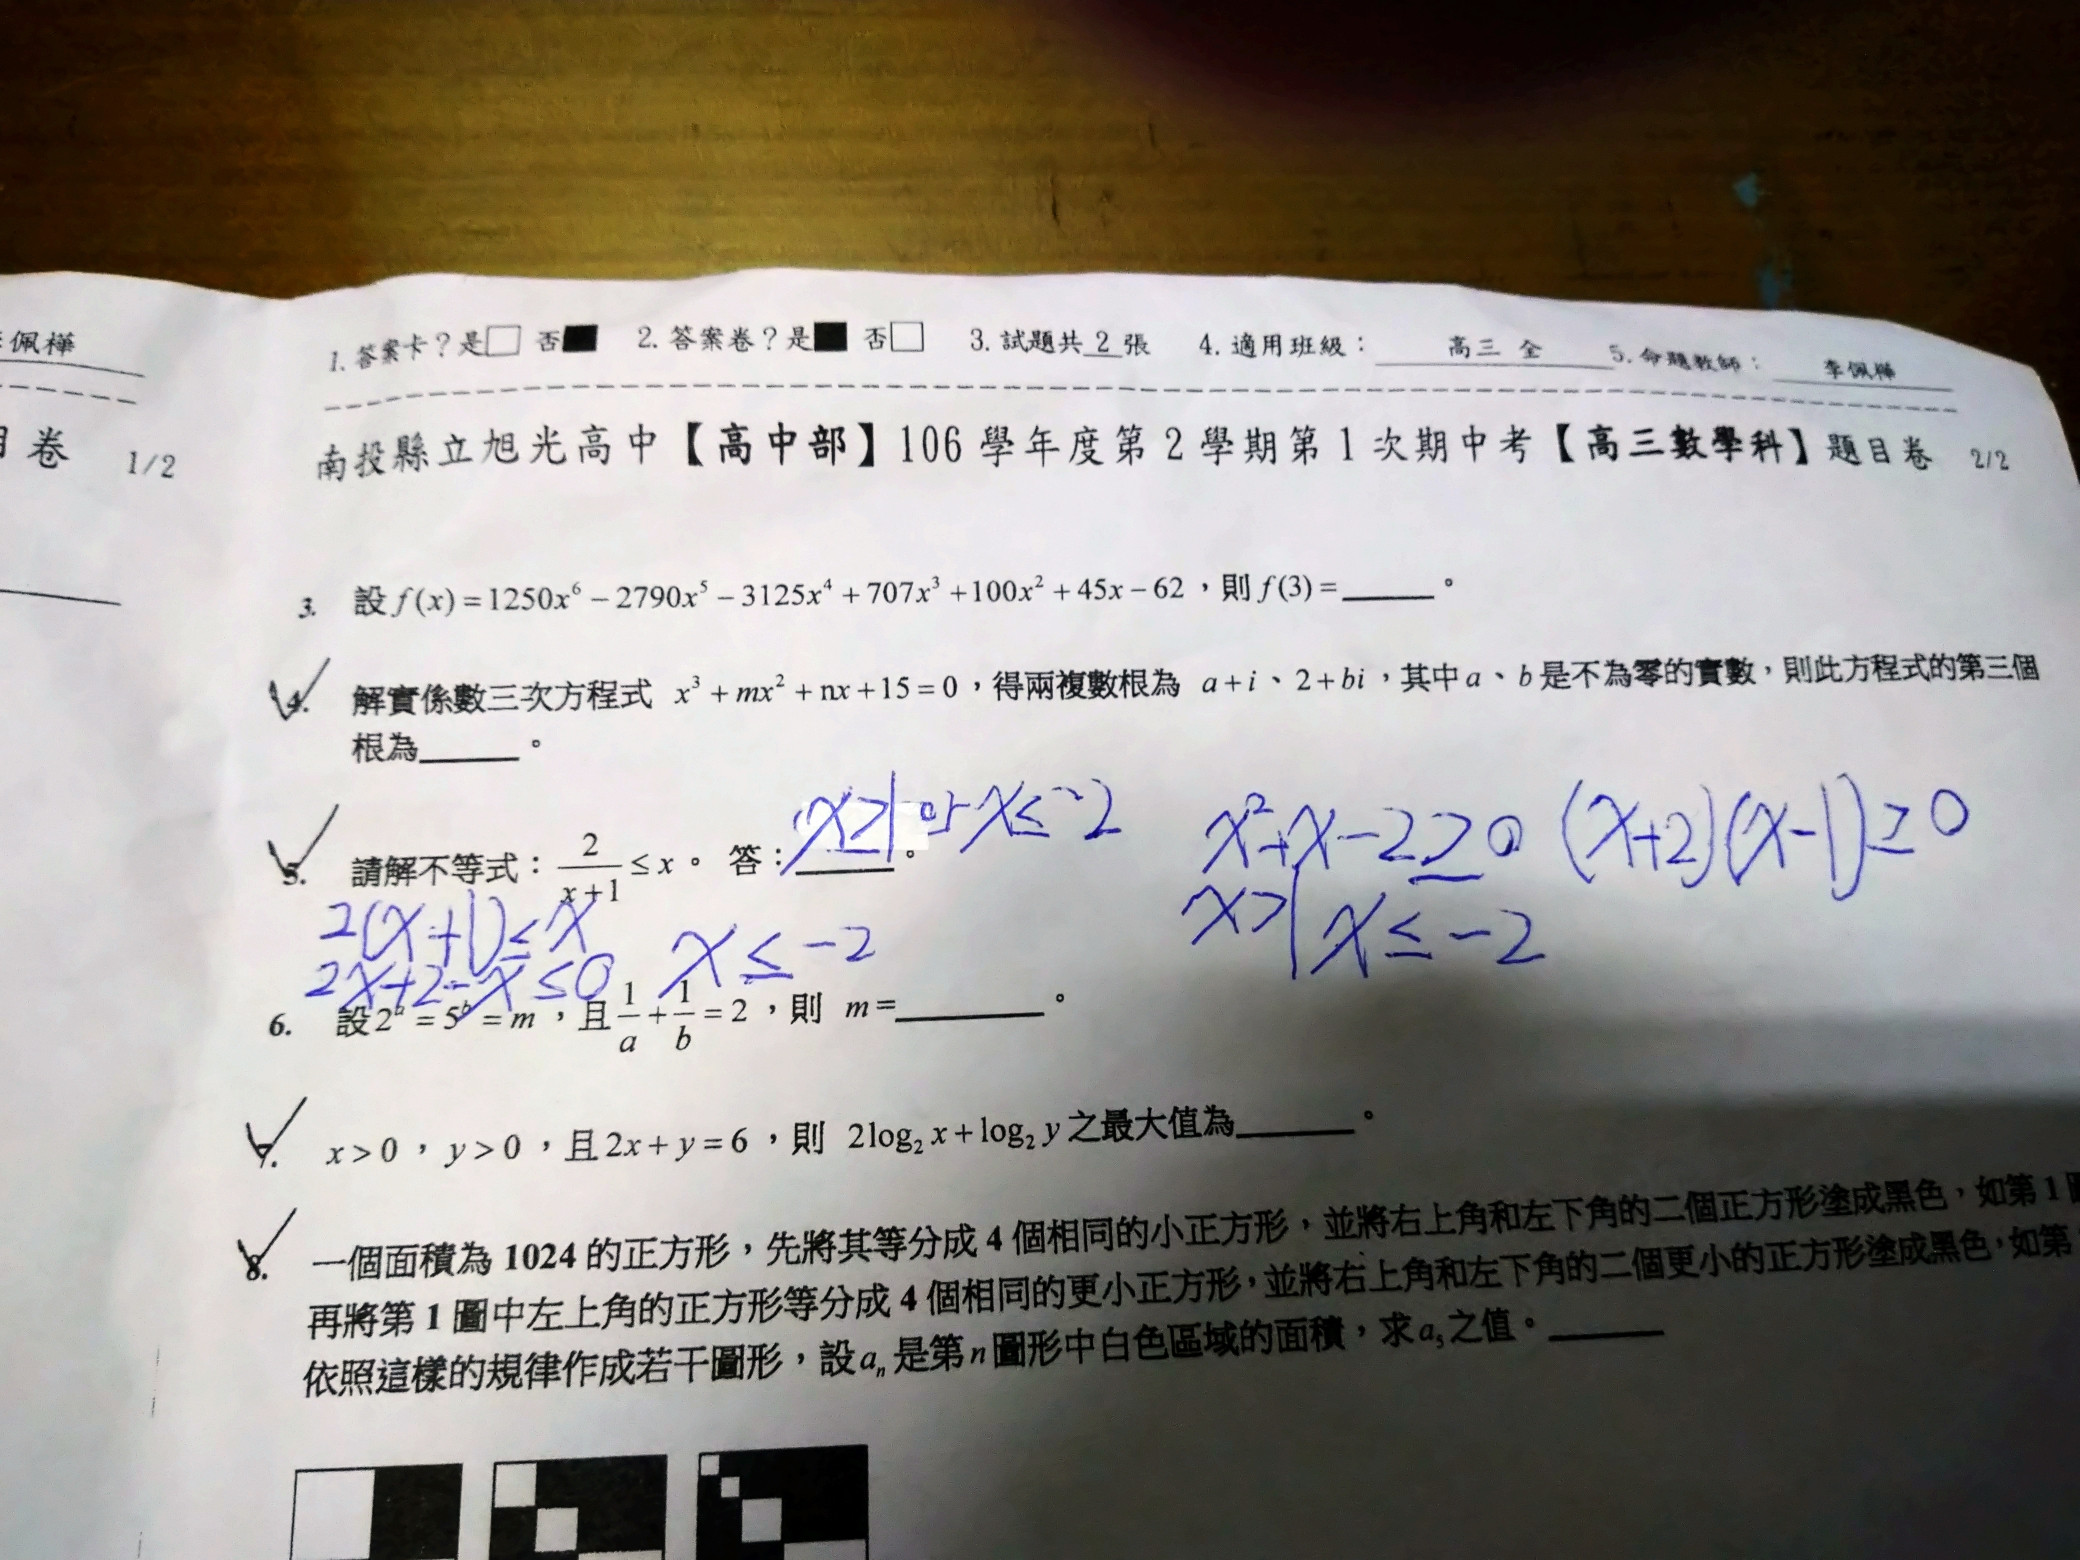 佩樺
卷 1/2
1. 答案卡？是□ 否■ 2. 答案卷？是■ 否□ 3. 試題共 2 張 4. 適用班級： 高三 全 5. 命題教師： 李佩樺
南投縣立旭光高中【高中部】106 學年度第 2 學期第 1 次期中考【高三數學科】題目卷 2/2
3. 設 f(x) = 1250x⁶ − 2790x⁵ − 3125x⁴ + 707x³ + 100x² + 45x − 62，則 f(3) = ______。
4. 解實係數三次方程式 x³ + mx² + nx + 15 = 0，得兩複數根為 a + i、2 + bi，其中 a、b 是不為零的實數，則此方程式的第三個
根為______。
x>1 or x≤-2 x²+x-2≥0 (x+2)(x-1)≥0
5. 請解不等式：2/(x+1) ≤ x。 答：______。
x>1 x≤-2
2(x+1)≤x
2x+2-x≤0 x≤-2
6. 設 2ᵃ = 5ᵇ = m，且 1/a + 1/b = 2，則 m = ______。
7. x > 0，y > 0，且 2x + y = 6，則 2log₂ x + log₂ y 之最大值為______。
8. 一個面積為 1024 的正方形，先將其等分成 4 個相同的小正方形，並將右上角和左下角的二個正方形塗成黑色，如第 1
再將第 1 圖中左上角的正方形等分成 4 個相同的更小正方形，並將右上角和左下角的二個更小的正方形塗成黑色，如第
依照這樣的規律作成若干圖形，設 aₙ 是第 n 圖形中白色區域的面積，求 a₅ 之值。______